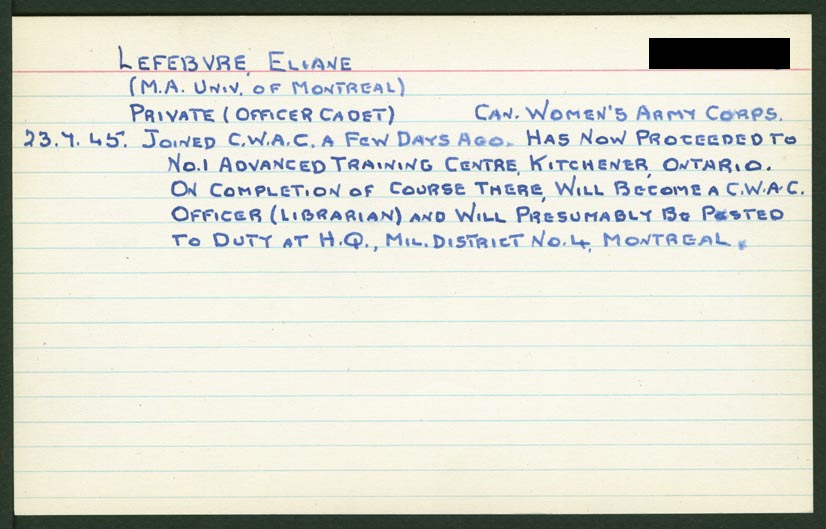 LEFEBVRE, ELIANE
(M.A. UNIV. OF MONTREAL)
PRIVATE (OFFICER CADET) CAN. WOMEN'S ARMY CORPS.
23.7.45. JOINED C.W.A.C. A FEW DAYS AGO. HAS NOW PROCEEDED TO
NO.1 ADVANCED TRAINING CENTRE, KITCHENER, ONTARIO.
ON COMPLETION OF COURSE THERE, WILL BECOME A C.W.A.C.
OFFICER (LIBRARIAN) AND WILL PRESUMABLY BE POSTED
TO DUTY AT H.Q., MIL. DISTRICT NO.4, MONTREAL.